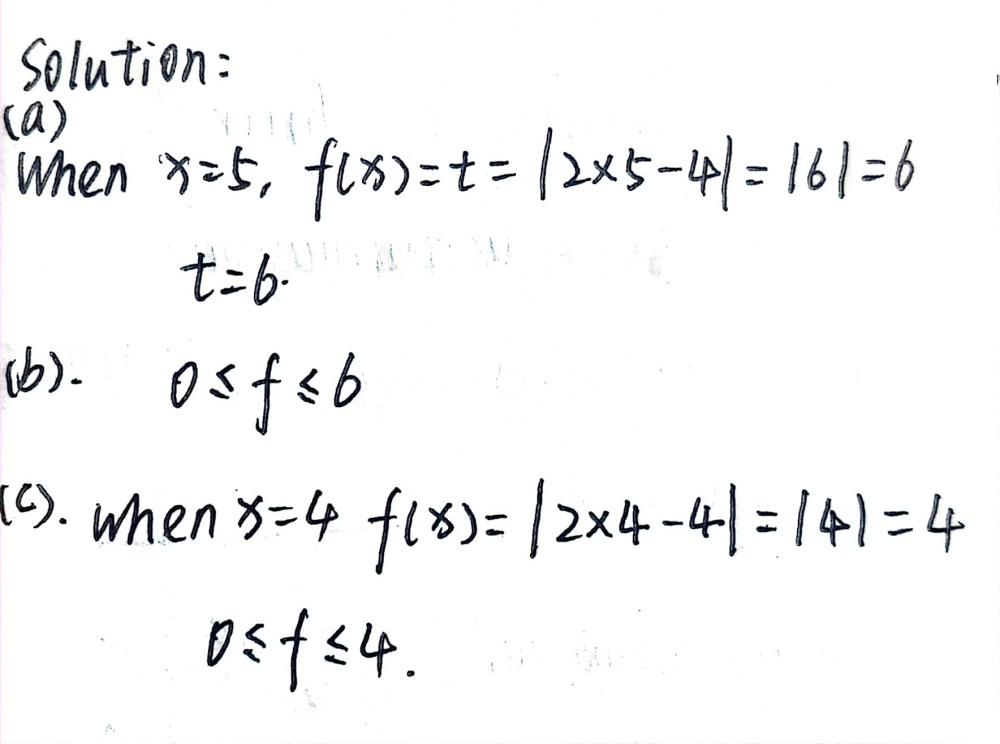 Solution:
(a)
When x=5, f(x)=t=|2×5-4|=|6|=6
t=6.
(b). 0≤f≤6
(c). when x=4 f(x)=|2×4-4|=|4|=4
0≤f≤4.